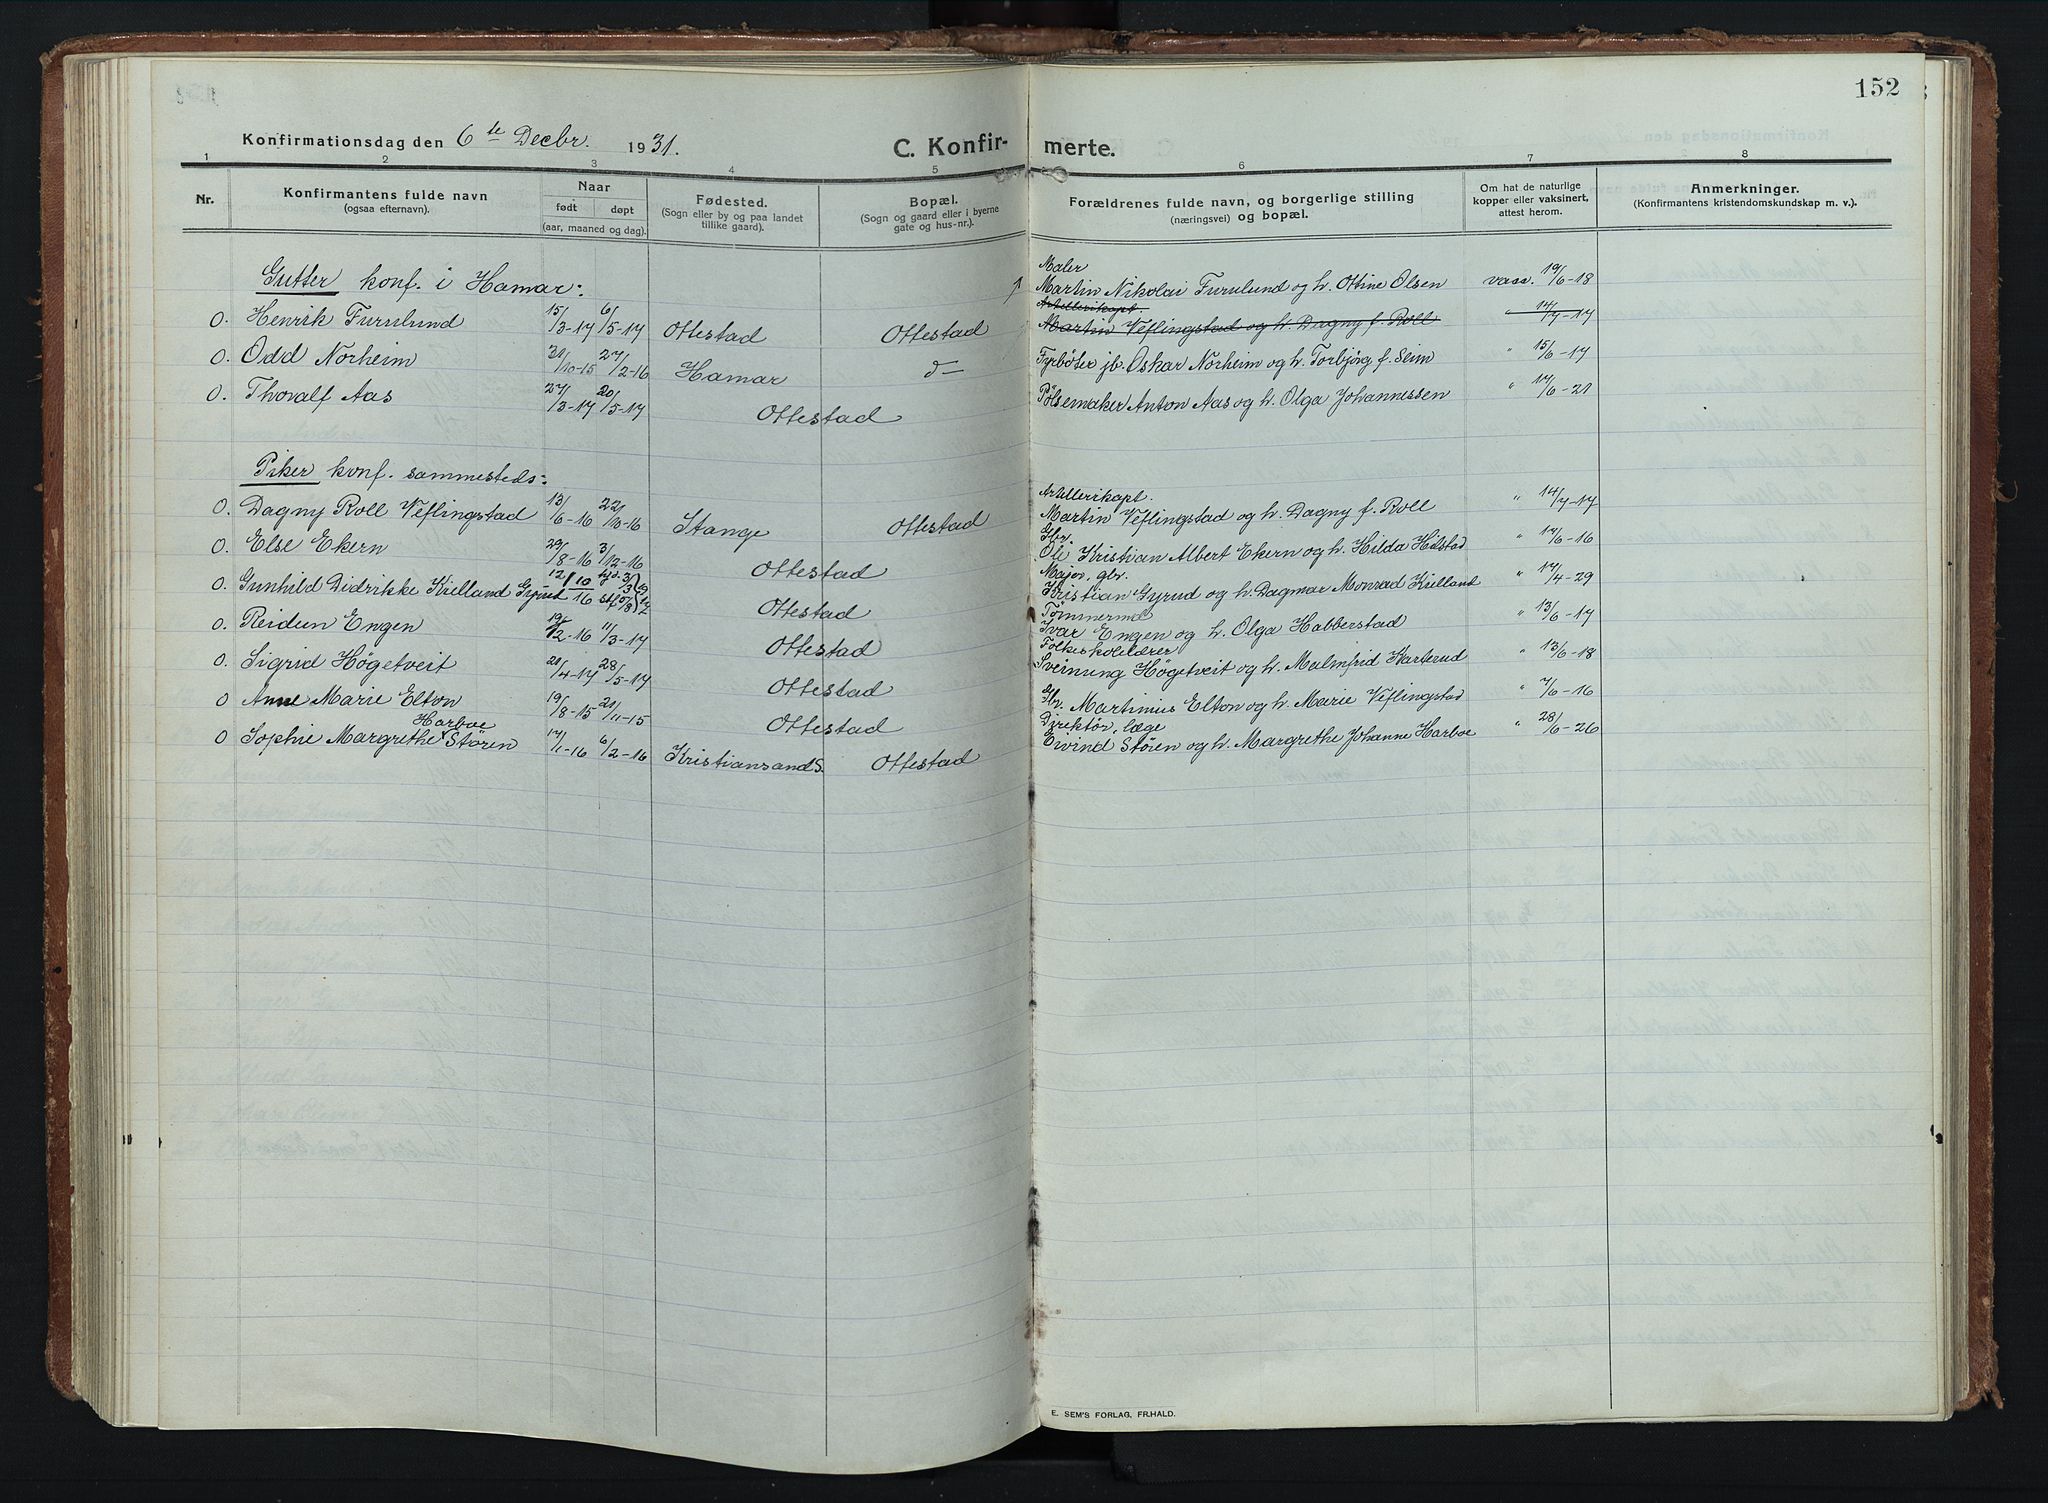 152
Konfirmationsdag den 6te Decbr. 1931.
C. Konfir- merte.
1 2 3 4 5 6 7 8
Nr.
Konfirmantens fulde navn
(ogsaa efternavn).
Naar
født døpt
(aar, maaned og dag).
Fødested.
(Sogn eller by og paa landet
tillike gaard).
Bopæl.
(Sogn og gaard eller i byerne
gate og hus-nr.).
Forældrenes fulde navn, og borgerlige stilling
(næringsvei) og bopæl.
Om hat de naturlige
kopper eller vaksinert,
attest herom.
Anmerkninger.
(Konfirmantens kristendomskundskap m. v.).
Gutter konf. i Hamar:
Maler
0. Henrik Furulund 15/3-17 6/5-17 Ottestad Ottestad Martin Nikolai Furulund og h. Ottine Olsen vacc. 19/6-18
Artillerikapt.
Martin Veflingstad og h. Dagny f. Roll " 14/7-17
0. Odd Norheim 31/10-15 27/2-16 Hamar d— Fyrbøter jb. Oskar Norheim og h. Torbjørg f. Seim " 15/6-17
0. Thovalf Aas 27/3-17 20/5-17 Ottestad Pølsemaker Anton Aas og h. Olga Johannessen " 17/6-21
Piker konf. sammesteds:
Artillerikapt.
0. Dagny Roll Veflingstad 13/6-16 22/10-16 Stange Ottestad Martin Veflingstad og h. Dagny f. Roll " 14/7-17
Gbr.
0. Else Ekern 29/8-16 3/12-16 Ottestad Ole Kristian Albert Ekern og h. Hilda Hilstad " 17/6-16
Major, gbr.
0. Gunhild Didrikke Kielland Gyrud 12/10 16 Ottestad Kristian Gyrud og h. Dagmar Monrad Kielland " 17/4-29
Tømmermd
0. Reidun Engen 19/12-16 11/3-17 Ottestad Ivar Engen og h. Olga Habberstad " 13/6-17
Folkeskolelærer
0. Sigrid Högetveit 21/4-17 28/5-17 Ottestad Sveinung Högetveit og h. Malmfrid Harterud " 13/6-18
0 Anne Marie Elton 19/8-15 21/11-15 Ottestad Gbr. Martinius Elton og h. Marie Veflingstad " 7/6-16
Harboe
Direktör, læge
0 Sophie Margrethe Stören 17/11-16 6/2-16 Kristiansand S. Ottestad Eivind Stören og h. Margrethe Johanne Harboe " 28/6-26
E. SEM'S FORLAG, FR.HALD.